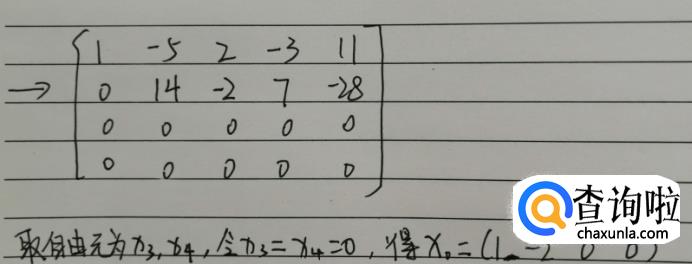 1 -5 2 -3 11
→ 0 14 -2 7 -28
0 0 0 0 0
0 0 0 0 0
取自由元为x3,x4,令x3=x4=0,得X0=(1 -2 0 0)
查询啦
chaxunla.com